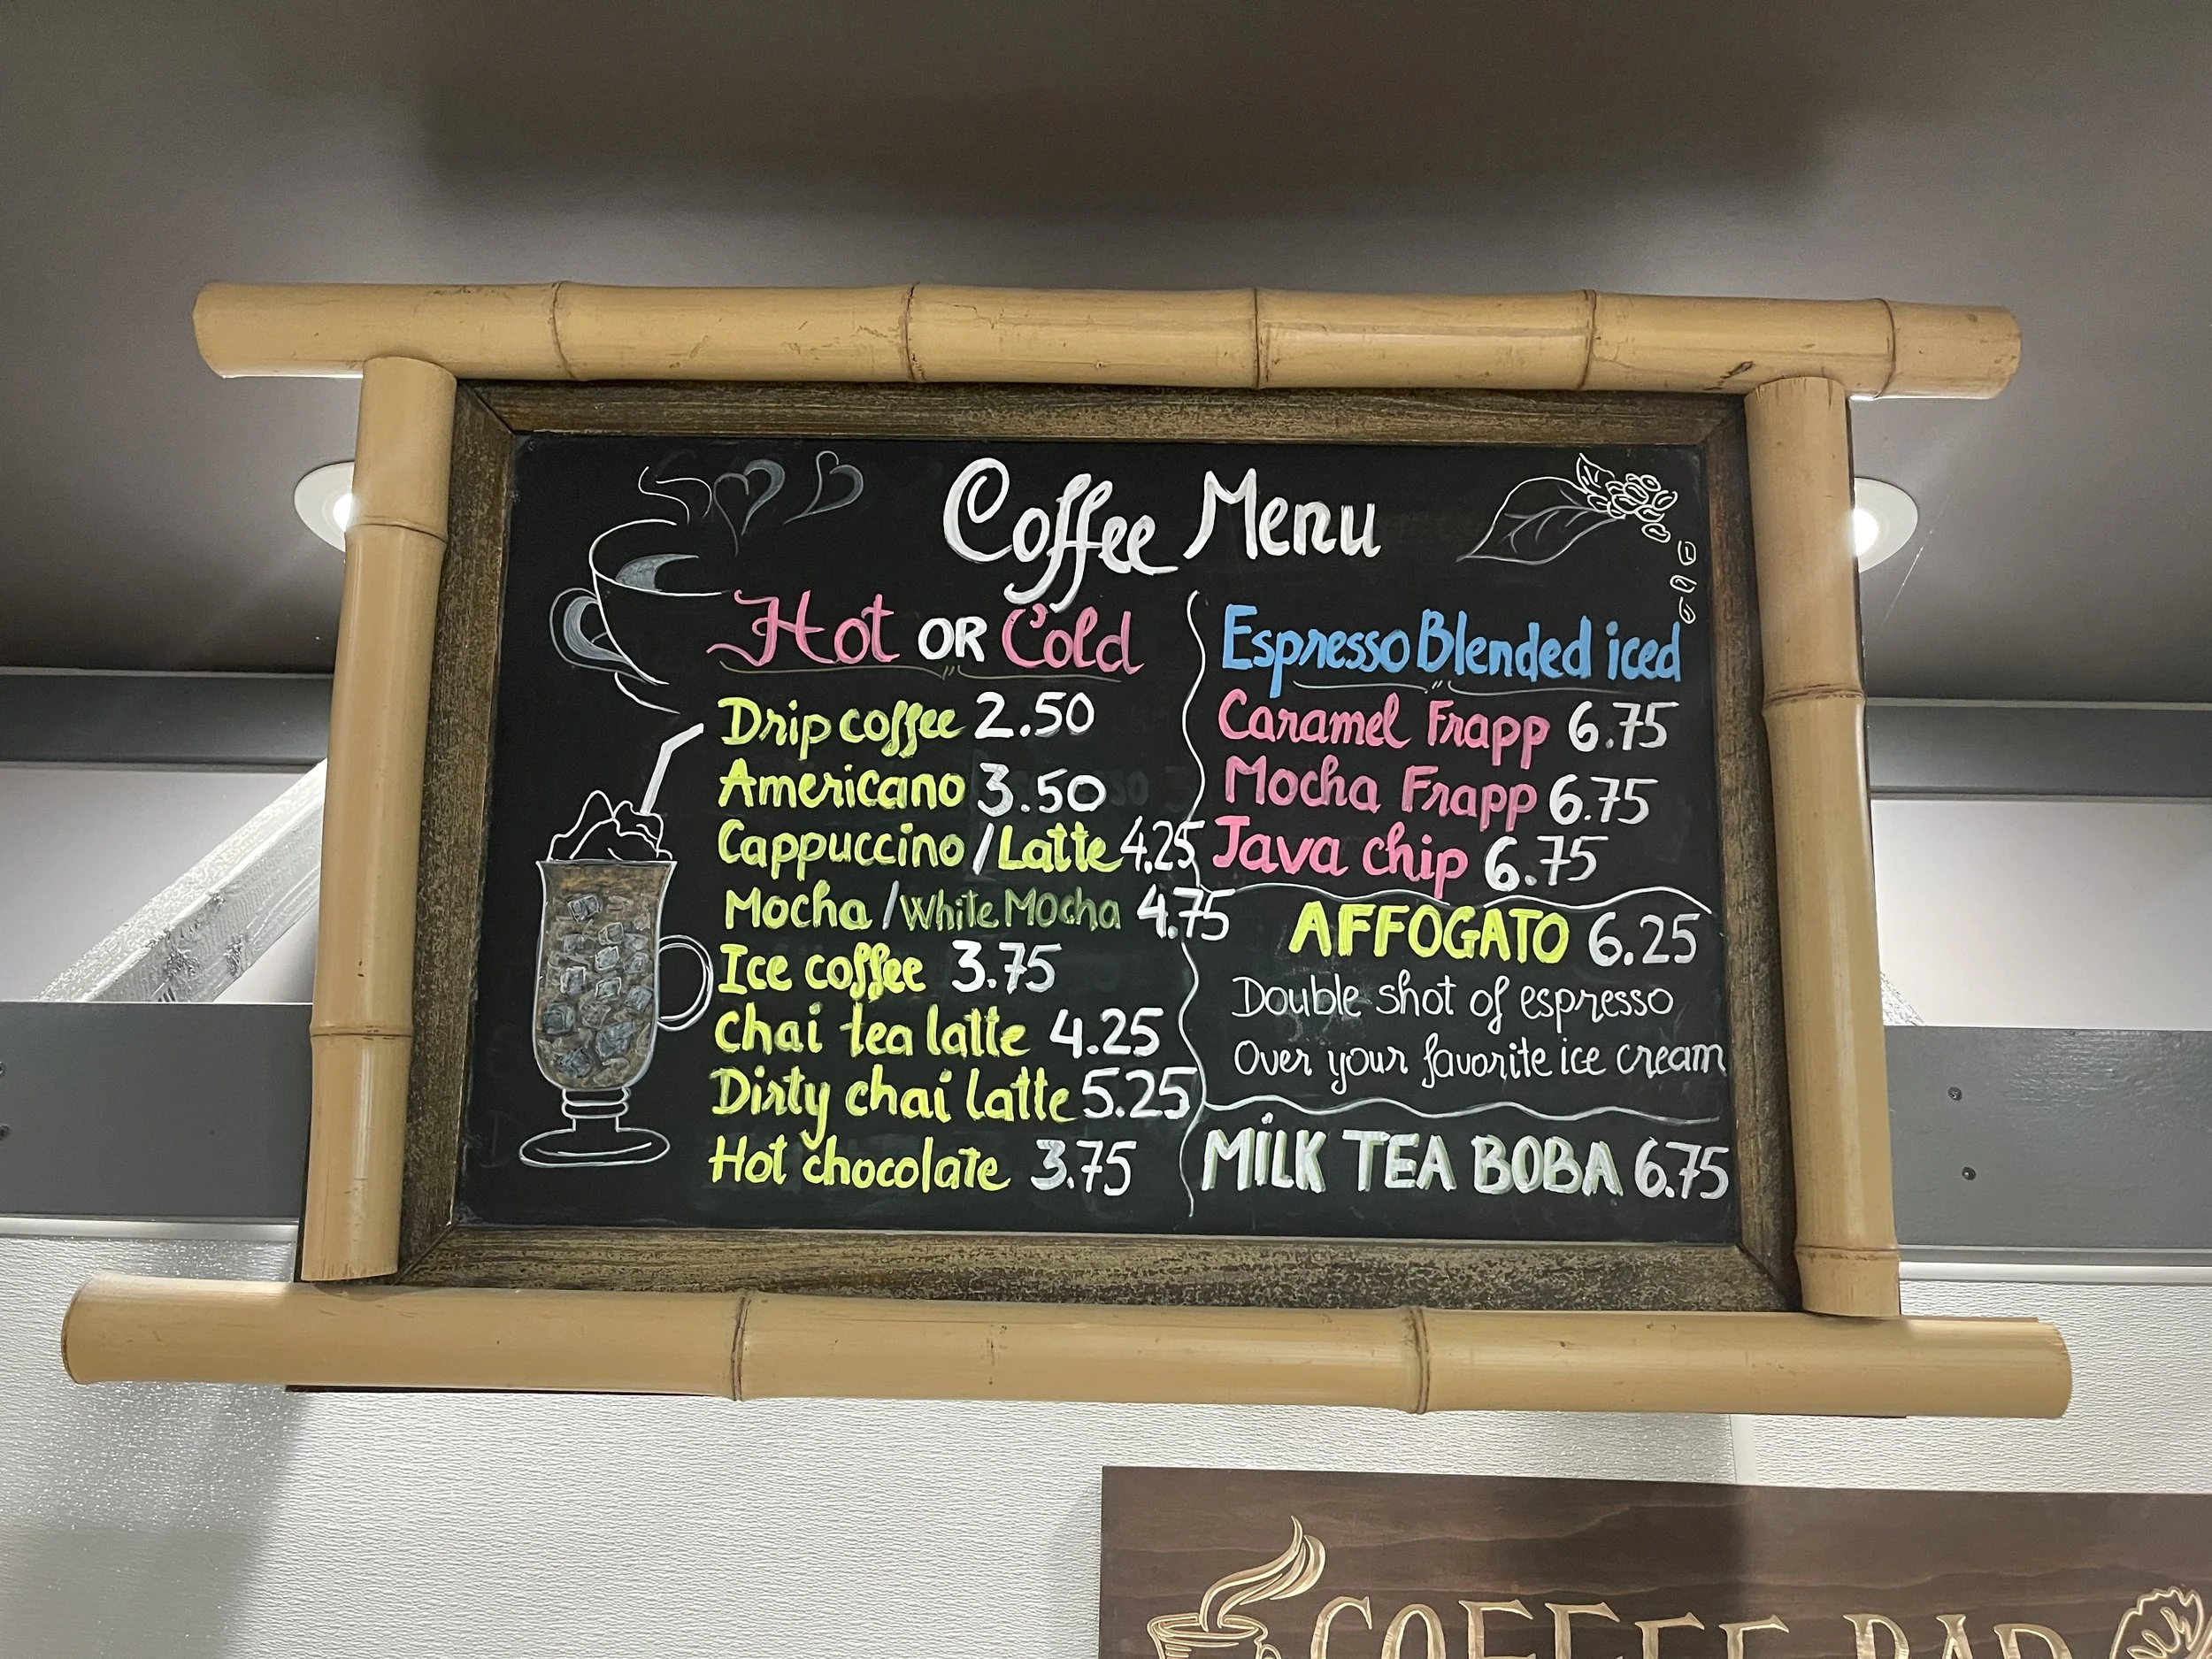 Coffee Menu
Hot OR Cold
Drip coffee 2.50
Americano 3.50
Cappuccino / Latte 4.25
Mocha / White Mocha 4.75
Ice coffee 3.75
Chai tea latte 4.25
Dirty chai latte 5.25
Hot chocolate 3.75
Espresso Blended iced
Caramel Frapp 6.75
Mocha Frapp 6.75
Java chip 6.75
AFFOGATO 6.25
Double shot of espresso
Over your favorite ice cream
MiLK TEA BOBA 6.75
COFFEE BAR